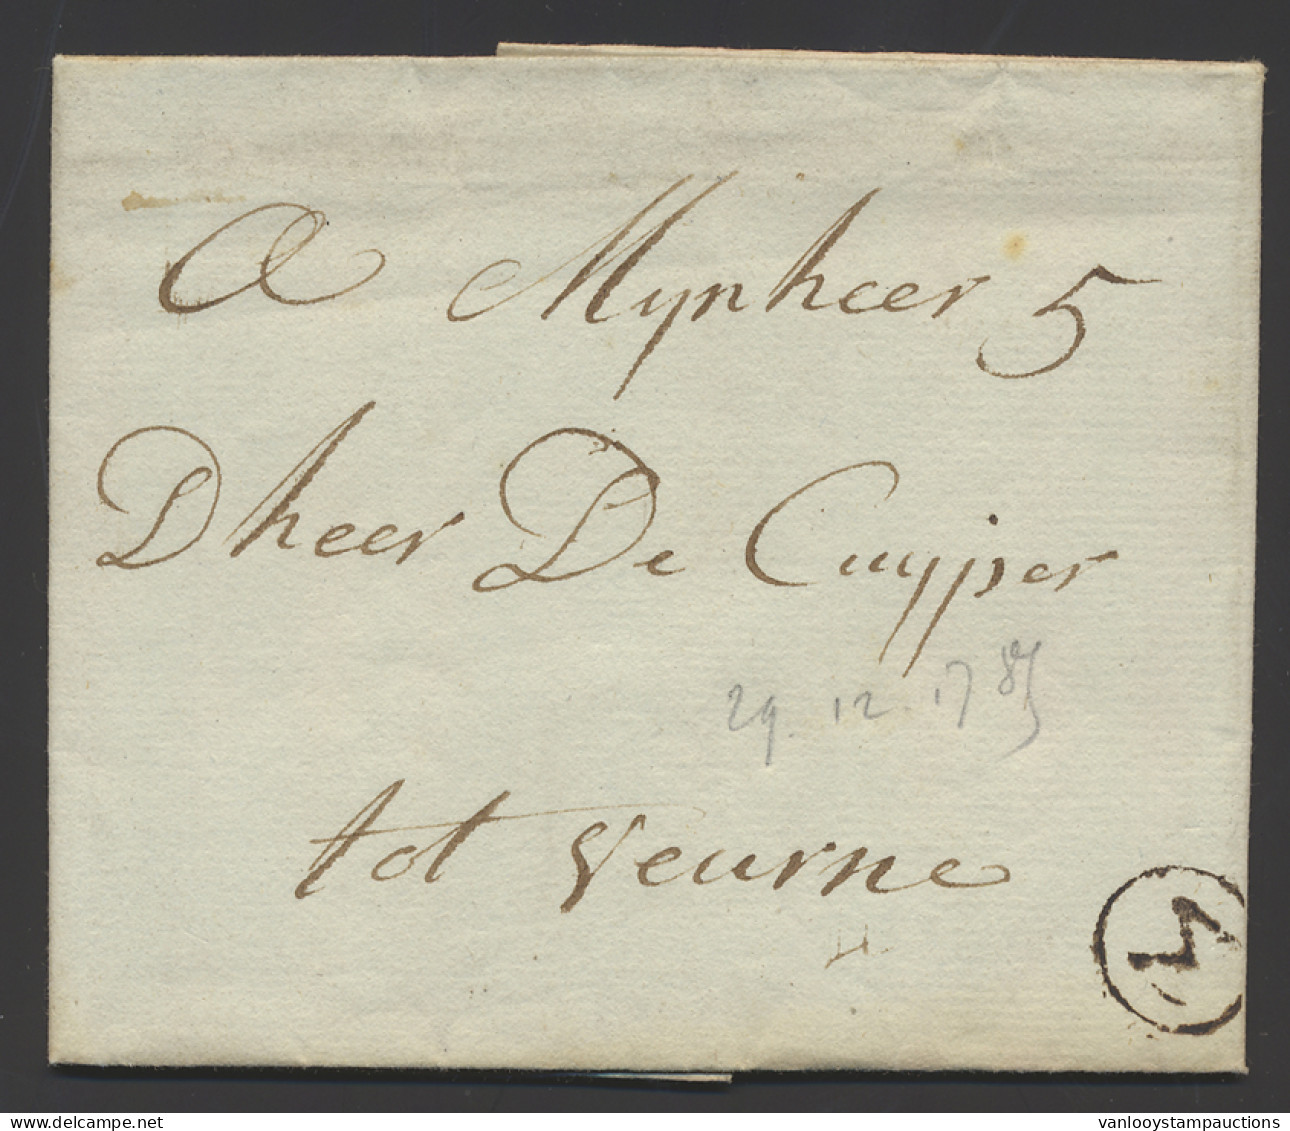 A Mynheer 5
Dheer De Cuyper
29. 12. 1785
tot Veurne
delcampe.net
vanlooystampauctions